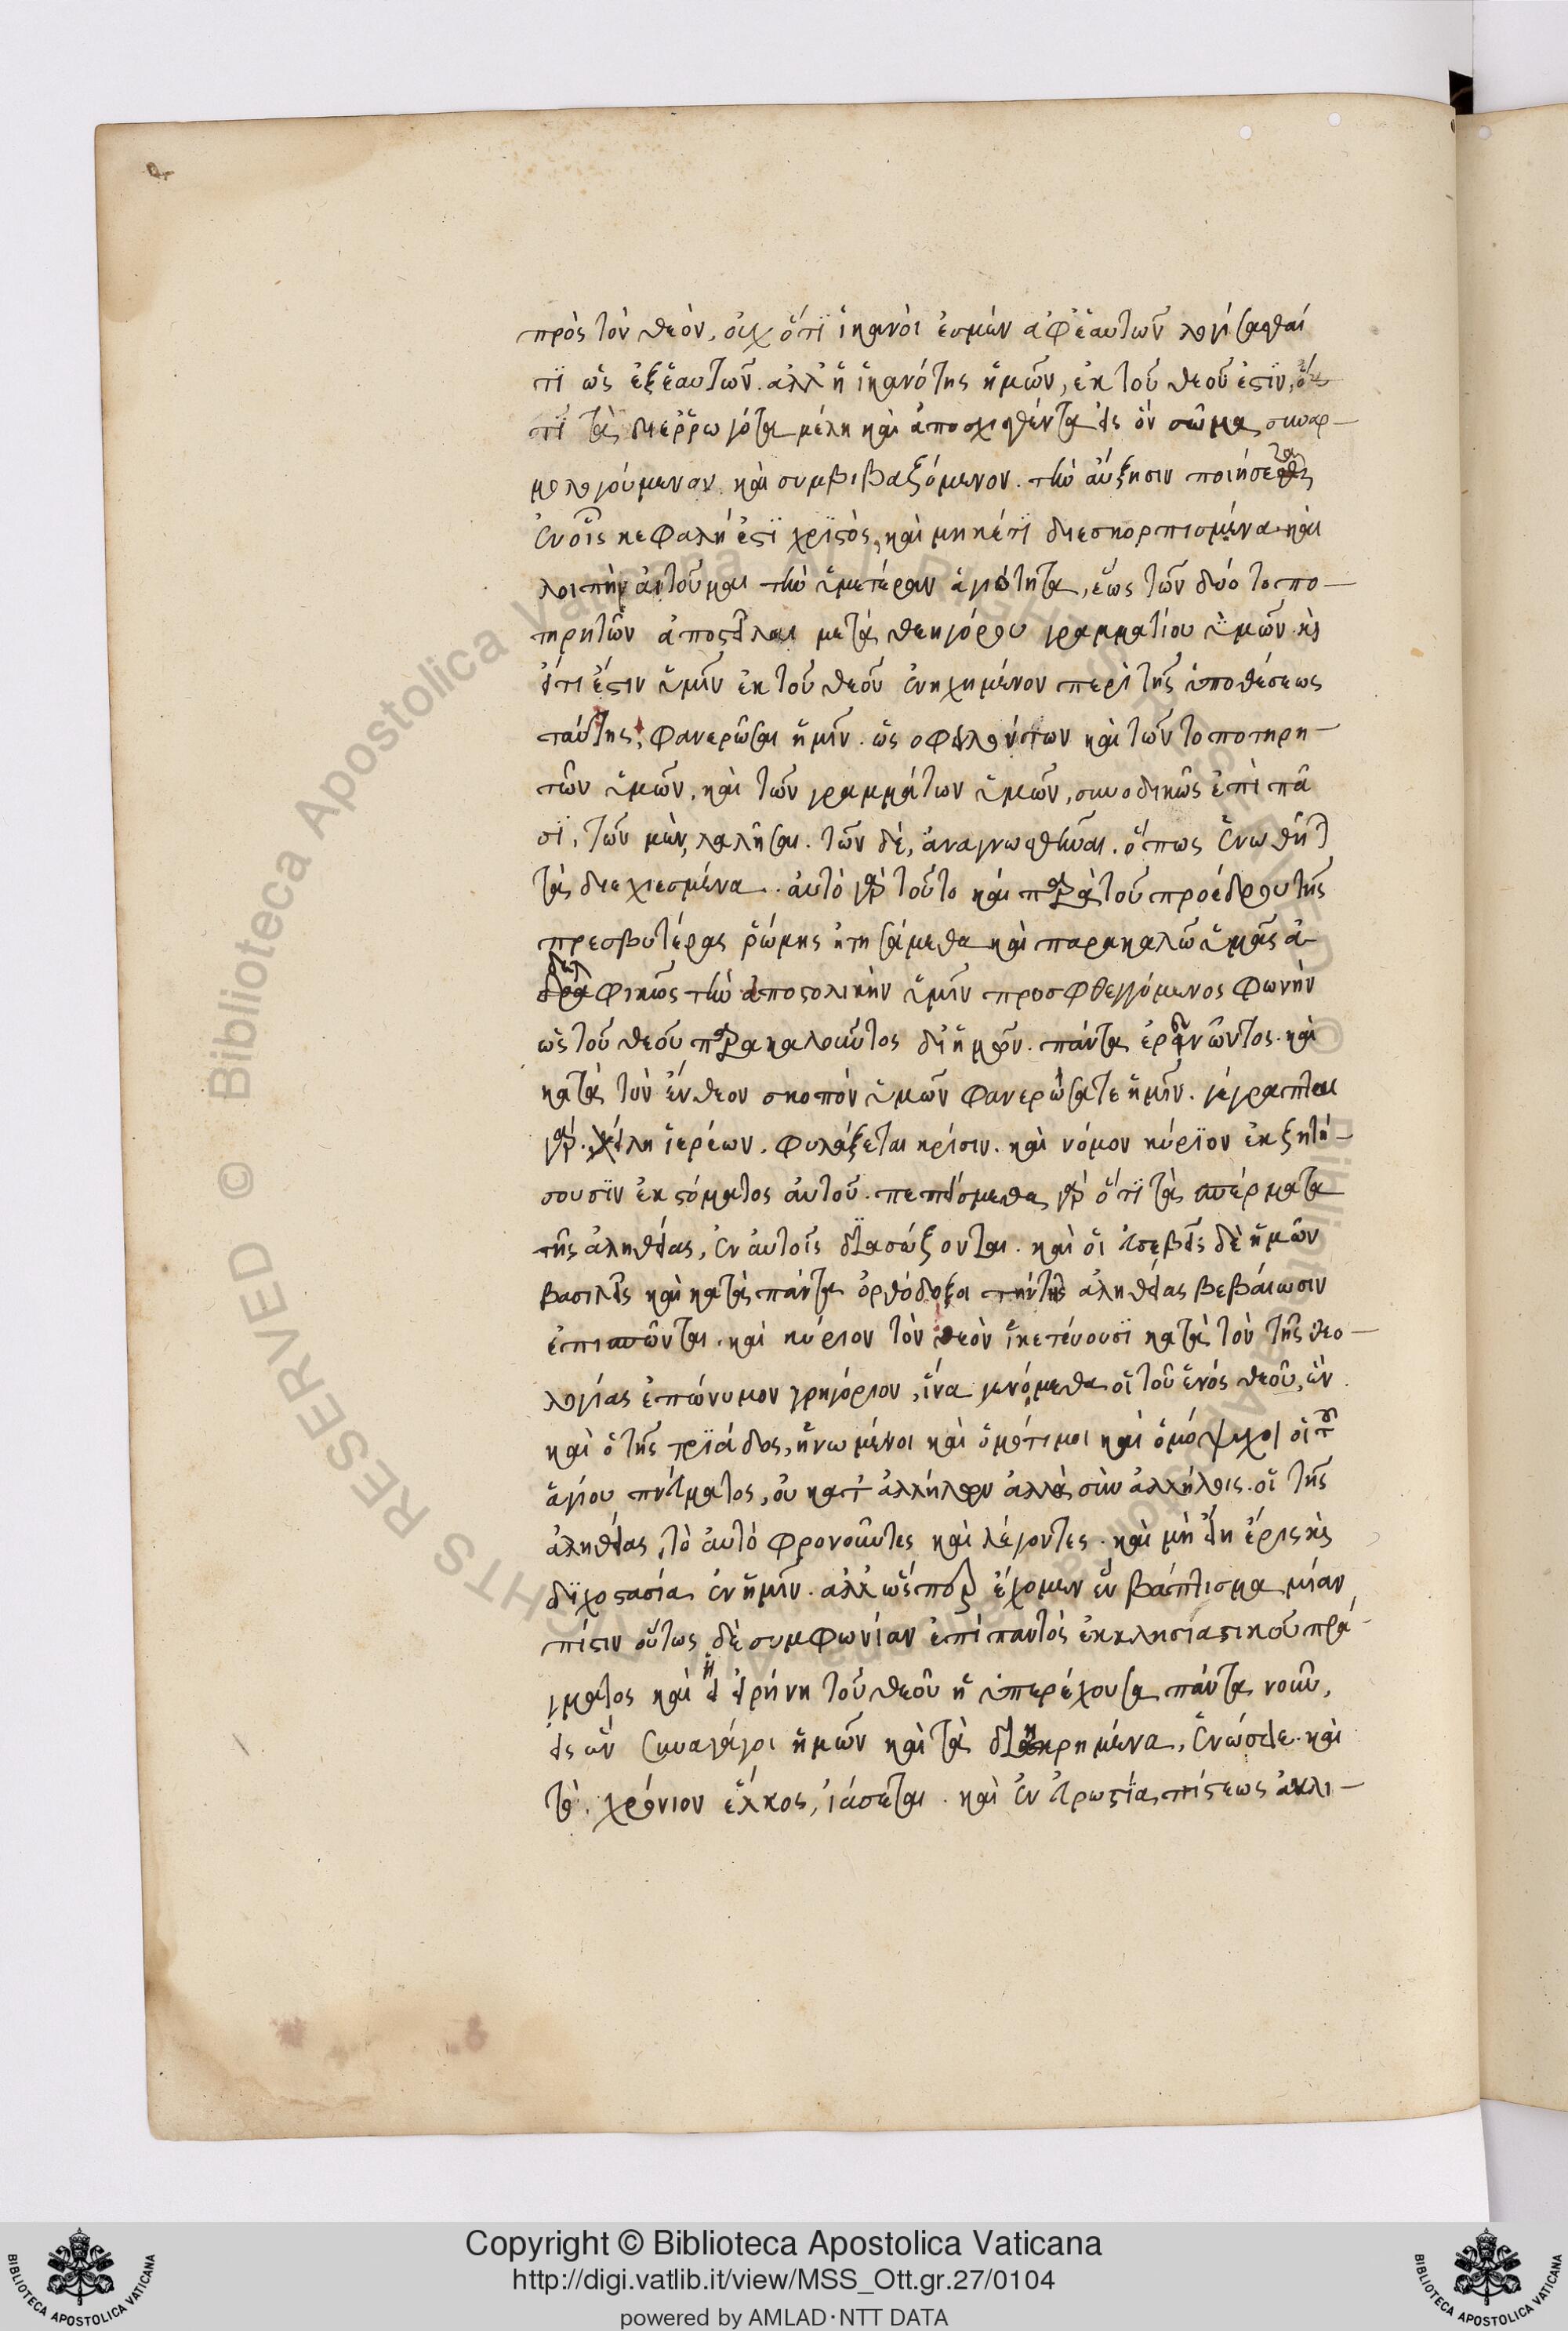 πρὸς τὸν θεὸν, οὐχ ὅτϊ ἱκανοὶ ἐσμὲν ἀφ' ἑαυτῶν λογίσασθαί
τϊ ὡς ἐξ ἑαυτῶν. ἀλλ' ἡ ἱκανότης ἡμῶν, ἐκ τοῦ θεοῦ ἐστϊν,
τὰ διερρωγότα μέλη καὶ ἀποσχισθέντα εἰς ἓν σῶμα, συναρ–
μολογούμενον καὶ συμβιβαζόμενον. τὴν αὔξησιν ποιήσεται
ἐν οἷς κεφαλή ἐστϊ χρϊστὸς, καὶ μηκέτϊ διεσκορπισμένα καὶ
λοιπὴν αἰτοῦμαι τὴν ὑμετέραν ἁγιότητα, ἕως τῶν δύο τοπο–
τηρητῶν ἀποστεῖλαι μετὰ θεηγόρου γραμματίου ὑμῶν καὶ
εἴ τι ἐστιν ὑμῖν ἐκ τοῦ θεοῦ ἐνηχημένον περὶ τῆς ὑποθέσεως
ταύτης, φανερῶσαι ἡμῖν. ὡς ὀφειλόντων καὶ τῶν τοποτηρη–
τῶν ὑμῶν, καὶ τῶν γραμμάτων ὑμῶν, συνοδικῶς ἐπὶ πᾶ
σϊ, τῶν μὲν, λαλῆσαι. τῶν δὲ, ἀναγνωσθῆναι. ὅπως ἑνωθῇ
τὰ διεχισμένα. αὐτὸ γὰρ τοῦτο καὶ παρὰ τοῦ προέδρου τῆς
πρεσβυτέρας ῥώμης ἠτησάμεθα καὶ παρακαλῶ ὑμᾶς ἀ
δελφικῶς τὴν ἀποστολικὴν ὑμῖν προσφθεγγόμενος φωνὴν
ὡς τοῦ θεοῦ παρακαλοῦντος δι' ἡμῶν. πάντα ἐραυνῶντος. καὶ
κατὰ τὸν ἔνθεον σκοπὸν ὑμῶν φανερώσατε ἡμῖν. γέγραπται
γάρ. χείλη ἱερέων. φυλάξεται κρίσιν. καὶ νόμον κύρϊον ἐκζητή–
σουσϊν ἐκ στόματος αὐτοῦ. πεπείσμεθα γὰρ ὅτϊ τὰ σπέρματα
τῆς ἀληθείας, ἐν αὐτοῖς διασώζονται. καὶ οἱ εὐσεβεῖς δὲ ἡμῶν
βασιλεῖς καὶ κατὰ πάντα ὀρθόδοξοι τὴν τῆς ἀληθείας βεβαίωσιν
ἐπισπῶνται. καὶ κύριον τὸν θεὸν ἱκετεύουσϊ κατὰ τὸν τῆς θεο–
λογίας ἐπώνυμον γρηγόριον, ἵνα γενόμεθα οἱ τοῦ ἑνός θεοῦ, ἓν
καὶ ὁ τῆς τρϊάδος, ἡνωμένοι καὶ ὁμότιμοι καὶ ὁμόψυχοι οἱ τοῦ
ἁγίου πνεύματος, οὐ κατ' ἀλλήλων ἀλλὰ σὺν ἀλλήλοις. οἱ τῆς
ἀληθείας, τὸ αὐτὸ φρονοῦντες καὶ λέγοντες. καὶ μὴ εἴη ἔρις καὶ
δϊχοστασία ἐν ἡμῖν. ἀλλ' ὥσπερ ἔχομεν ἓν βάπτισμα μίαν
πίστιν οὕτως δὲ συμφωνίαν ἐπὶ παντὸς ἐκκλησϊαστικοῦ πρά
γματος καὶ ἡ εἰρήνη τοῦ θεοῦ ἡ ὑπερέχουσα πάντα νοῦν,
εἰς ἓν συναγάγοι ἡμῶν καὶ τὰ διῃρημένα, ἑνώσειε. καὶ
τὸ χρόνιον ἕλκος, ἰάσεται. καὶ ἐν εὐρωστία, πίστεως ἀκλι–